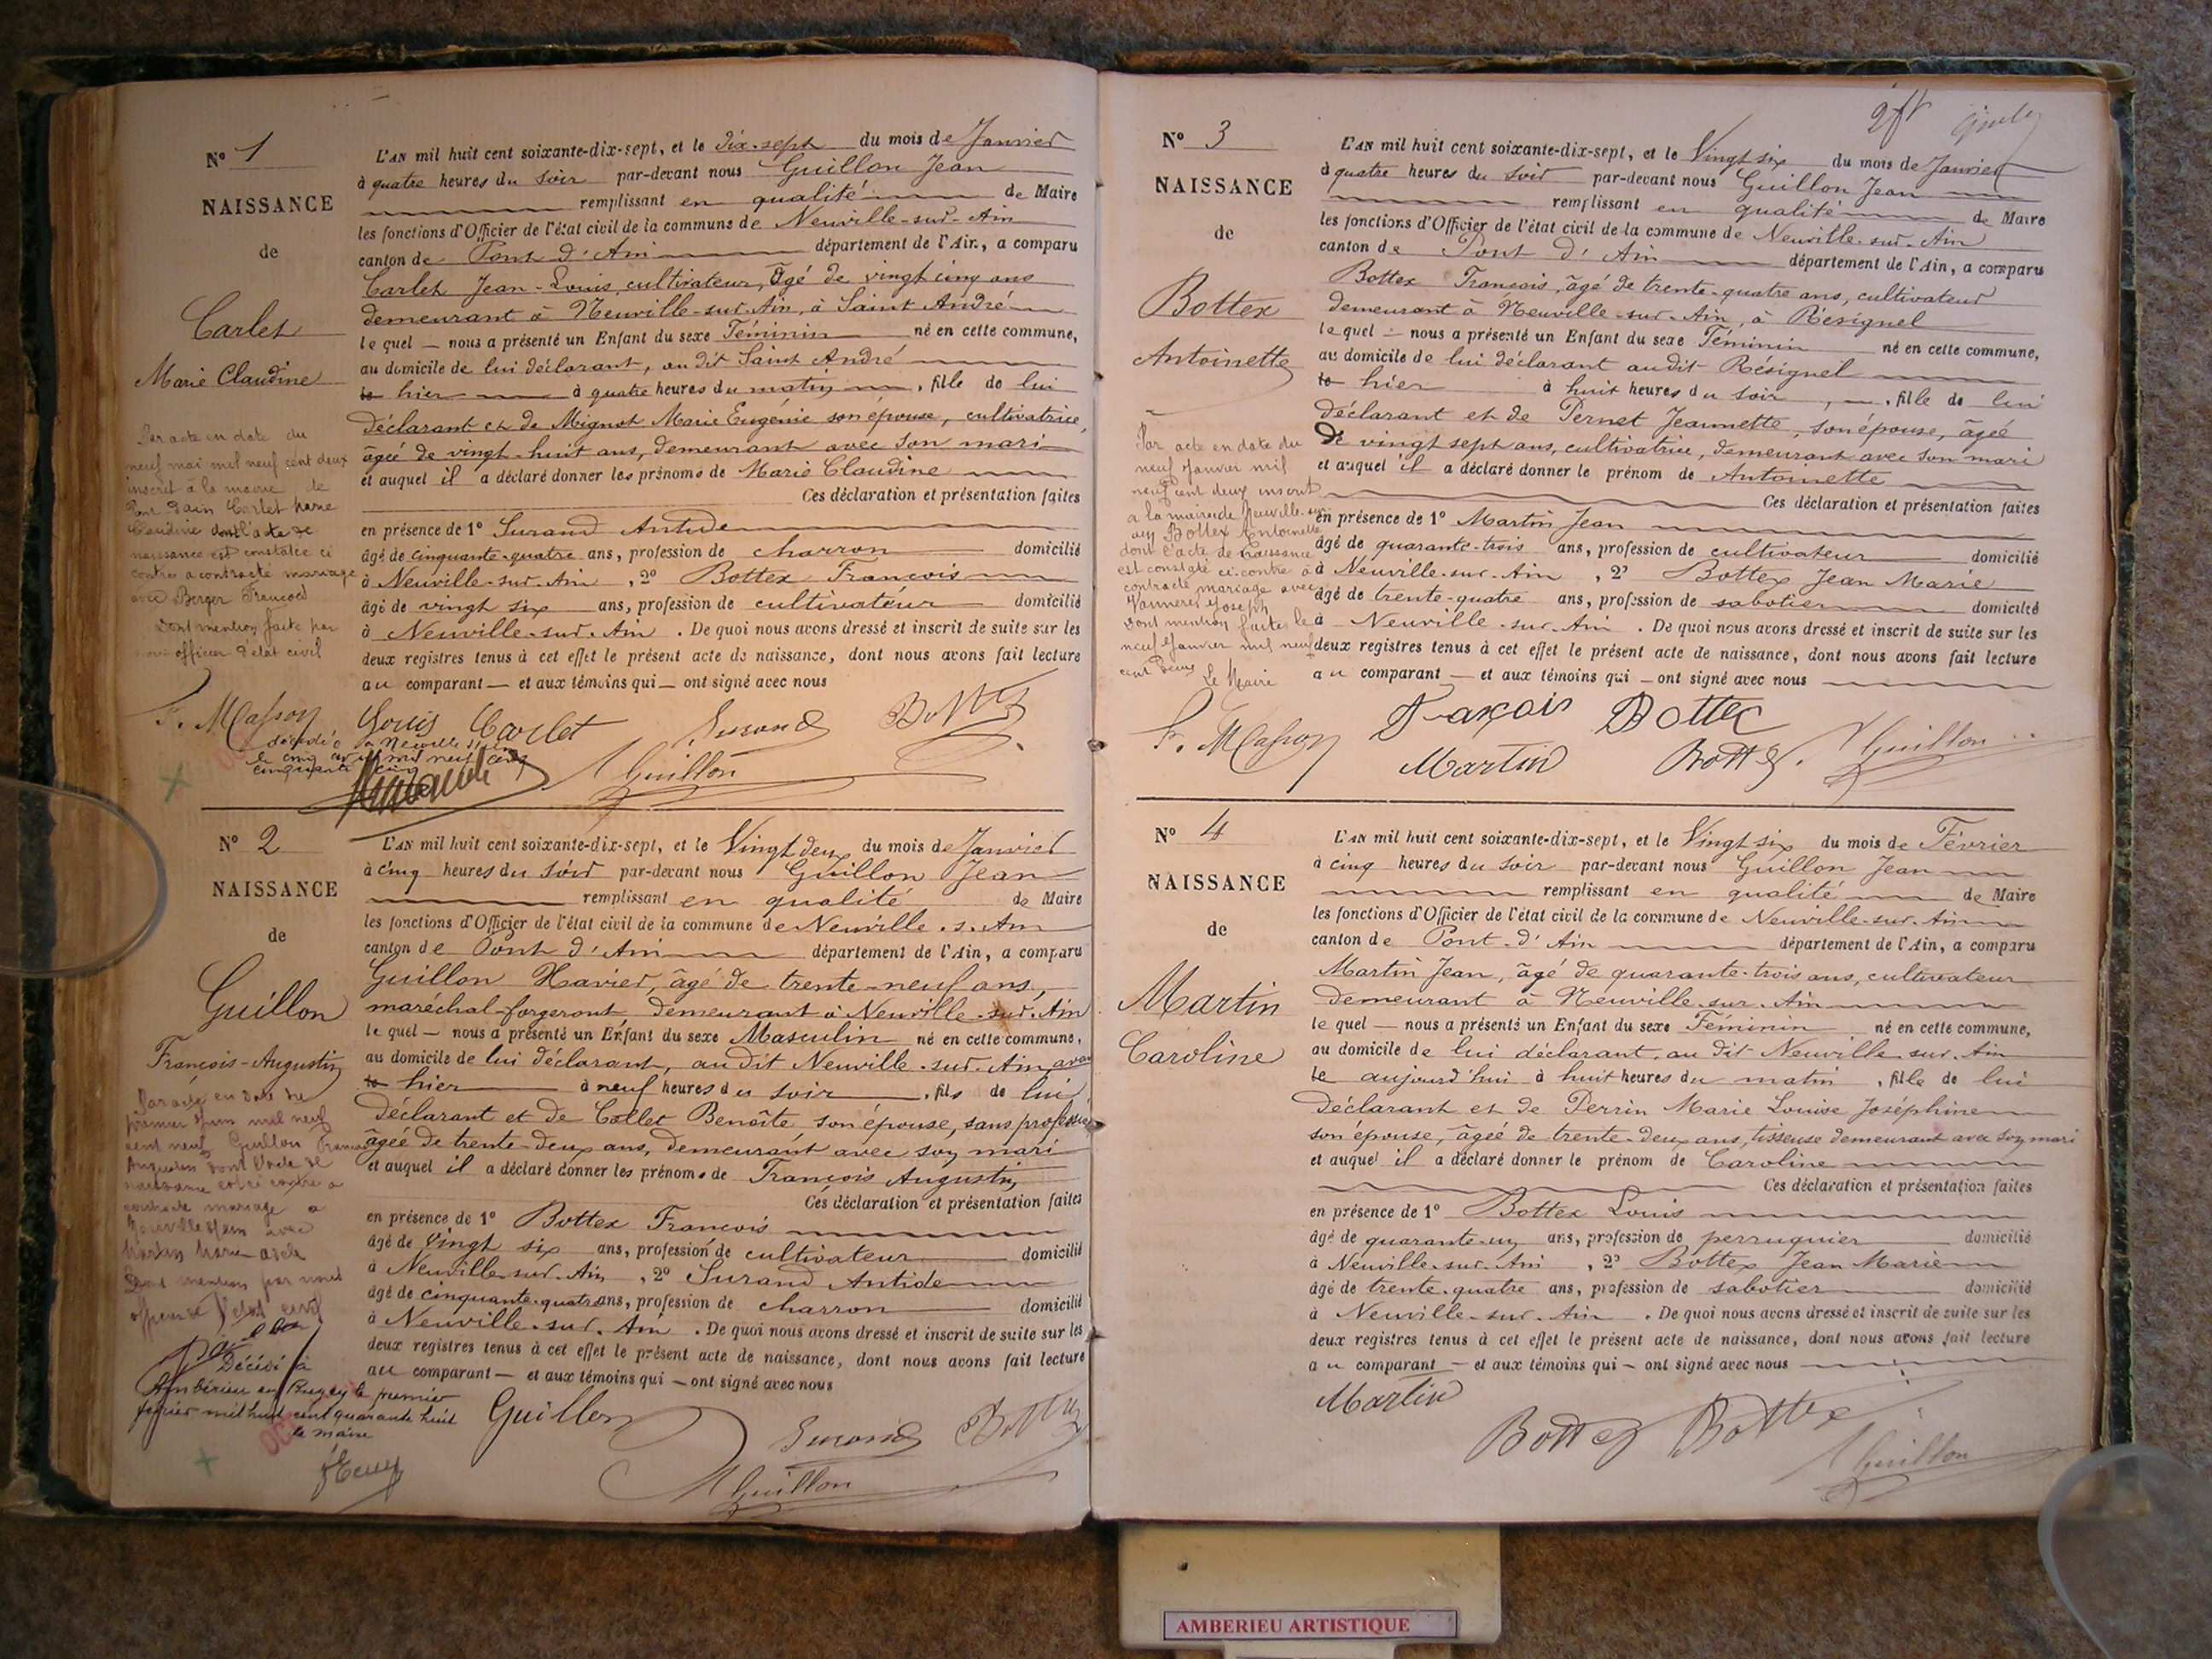 N° 1
NAISSANCE
de
Carlet
Marie Claudine
L'AN mil huit cent soixante-dix-sept, et le dix-sept du mois de Janvier
à quatre heures du soir par-devant nous Guillon Jean
remplissant en qualité de Maire
les fonctions d'Officier de l'état civil de la commune de Neuville-sur-Ain
canton de Pont d'Ain département de l'Ain, a comparu
Carlet Jean-Louis, cultivateur, âgé de vingt cinq ans
demeurant à Neuville-sur-Ain, à Saint André
lequel nous a présenté un Enfant du sexe Féminin né en cette commune,
au domicile de lui déclarant, au dit Saint André
le hier à quatre heures du matin, fille de lui
déclarant et de Mignot Marie Eugénie son épouse, cultivatrice,
âgée de vingt-huit ans, demeurant avec son mari
et auquel il a déclaré donner les prénoms de Marie Claudine
Ces déclaration et présentation faites
en présence de 1° Surand Antide
âgé de cinquante-quatre ans, profession de charron domicilié
à Neuville-sur-Ain, 2° Bottex Francois
âgé de vingt six ans, profession de cultivateur domicilié
à Neuville-sur-Ain. De quoi nous avons dressé et inscrit de suite sur les
deux registres tenus à cet effet le présent acte de naissance, dont nous avons fait lecture
au comparant et aux témoins qui ont signé avec nous
Par acte en date du
neuf mai mil neuf cent deux
inscrit à la mairie de
Pont d'ain Carlet Marie
Claudine dont l'acte de
naissance est constatée ci
contre a contracté mariage
avec Berger François
Dont mention faite par
nous officier d'état civil
F. Masson Louis Carlet Surand Bottex
décédée à Neuville s/ Ain
cinquante cinq
Guillon
N° 2
NAISSANCE
de
Guillon
François-Augustin
L'AN mil huit cent soixante-dix-sept, et le Vingt deux du mois de Janvier
à cinq heures du soir par-devant nous Guillon Jean
remplissant en qualité de Maire
les fonctions d'Officier de l'état civil de la commune de Neuville.s.Ain
canton de Pont d'Ain département de l'Ain, a comparu
Guillon Xavier, âgé de trente-neuf ans,
maréchal-forgeront, demeurant à Neuville-sur-Ain
lequel nous a présenté un Enfant du sexe Masculin né en cette commune,
au domicile de lui déclarant, au dit Neuville-sur-Ain
le hier à neuf heures du soir, fils de lui
déclarant et de Collet Benoîte, son épouse, sans profession
âgée de trente-deux ans, demeurant avec son mari
et auquel il a déclaré donner les prénoms de François Augustin
Ces déclaration et présentation faites
en présence de 1° Bottex Francois
âgé de vingt six ans, profession de cultivateur domicilié
à Neuville-sur-Ain, 2° Surand Antide
âgé de cinquante-quatre ans, profession de charron domicilié
à Neuville-sur-Ain. De quoi nous avons dressé et inscrit de suite sur les
deux registres tenus à cet effet le présent acte de naissance, dont nous avons fait lecture
au comparant et aux témoins qui ont signé avec nous
Par acte en date du
premier Juin mil neuf
cent neuf Guillon François
Augustin dont l'acte de
naissance est ci contre a
contracté mariage a
Neuville s/Ain avec
Martin Marie
Dont mention par nous
officier d'état civil
Décédé à
Ambérieu en Bugey le premier
février mil huit cent quarante huit
le maire
Guillon Surand Bottex
Guillon
N° 3
NAISSANCE
de
Bottex
Antoinette
L'AN mil huit cent soixante-dix-sept, et le Vingt six du mois de Janvier
à quatre heures du soir par-devant nous Guillon Jean
remplissant en qualité de Maire
les fonctions d'Officier de l'état civil de la commune de Neuville-sur-Ain
canton de Pont d'Ain département de l'Ain, a comparu
Bottex Francois, âgé de trente-quatre ans, cultivateur
demeurant à Neuville-sur-Ain, à Résignel
lequel nous a présenté un Enfant du sexe Féminin né en cette commune,
au domicile de lui déclarant audit Résignel
le hier à huit heures du soir, fille de lui
déclarant et de Pernet Jeannette, son épouse, âgée
de vingt sept ans, cultivatrice, demeurant avec son mari
et auquel il a déclaré donner le prénom de Antoinette
Ces déclaration et présentation faites
en présence de 1° Martin Jean
âgé de quarante-trois ans, profession de cultivateur domicilié
à Neuville-sur-Ain, 2° Bottex Jean Marie
âgé de trente-quatre ans, profession de sabotier domicilié
à Neuville-sur-Ain. De quoi nous avons dressé et inscrit de suite sur les
deux registres tenus à cet effet le présent acte de naissance, dont nous avons fait lecture
au comparant et aux témoins qui ont signé avec nous
Par acte en date du
neuf Janvier mil
neuf cent deux inscrit
à la mairie de Neuville-sur
ain Bottex Antoinette
dont l'acte de naissance
est constaté ci-contre a
contracté mariage avec
Joseph
Dont mention faite le
neuf Janvier mil neuf
cent deux
Le Maire
F. Masson François Bottex
Martin Bottex Guillon
N° 4
NAISSANCE
de
Martin
Caroline
L'AN mil huit cent soixante-dix-sept, et le Vingt six du mois de Février
à cinq heures du soir par-devant nous Guillon Jean
remplissant en qualité de Maire
les fonctions d'Officier de l'état civil de la commune de Neuville-sur-Ain
canton de Pont-d'Ain département de l'Ain, a comparu
Martin Jean, âgé de quarante-trois ans, cultivateur
demeurant à Neuville-sur-Ain
lequel nous a présenté un Enfant du sexe Féminin né en cette commune,
au domicile de lui déclarant, au dit Neuville-sur-Ain
le aujourd'hui à huit heures du matin, fille de lui
déclarant et de Perrin Marie Louise Joséphine
son épouse, âgée de trente-deux ans, tisseuse demeurant avec son mari
et auquel il a déclaré donner le prénom de Caroline
Ces déclaration et présentation faites
en présence de 1° Bottex Louis
âgé de quarante-un ans, profession de perruquier domicilié
à Neuville-sur-Ain, 2° Bottex Jean Marie
âgé de trente-quatre ans, profession de sabotier domicilié
à Neuville-sur-Ain. De quoi nous avons dressé et inscrit de suite sur les
deux registres tenus à cet effet le présent acte de naissance, dont nous avons fait lecture
au comparant et aux témoins qui ont signé avec nous
Martin
Bottex Bottex
Guillon
AMBERIEU ARTISTIQUE